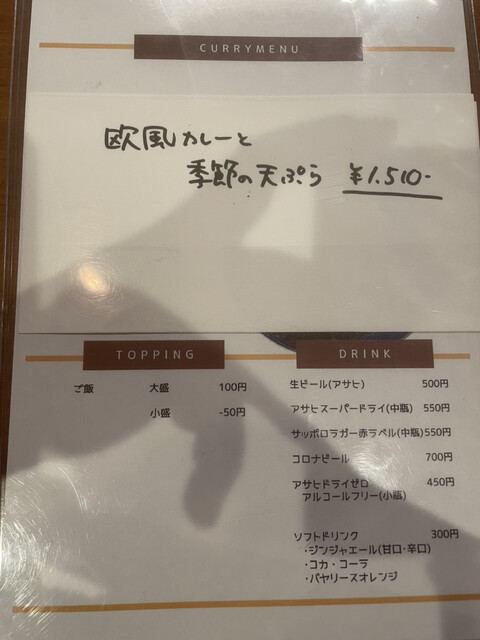 CURRYMENU
欧風カレーと
季節の天ぷら ¥1.510-
TOPPING
ご飯 大盛 100円
小盛 -50円
DRINK
生ビール(アサヒ) 500円
アサヒスーパードライ(中瓶) 550円
サッポロラガー赤ラベル(中瓶)550円
コロナビール 700円
アサヒドライゼロ 450円
アルコールフリー(小瓶)
ソフトドリンク 300円
・ジンジャエール(甘口・辛口)
・コカ・コーラ
・バヤリースオレンジ